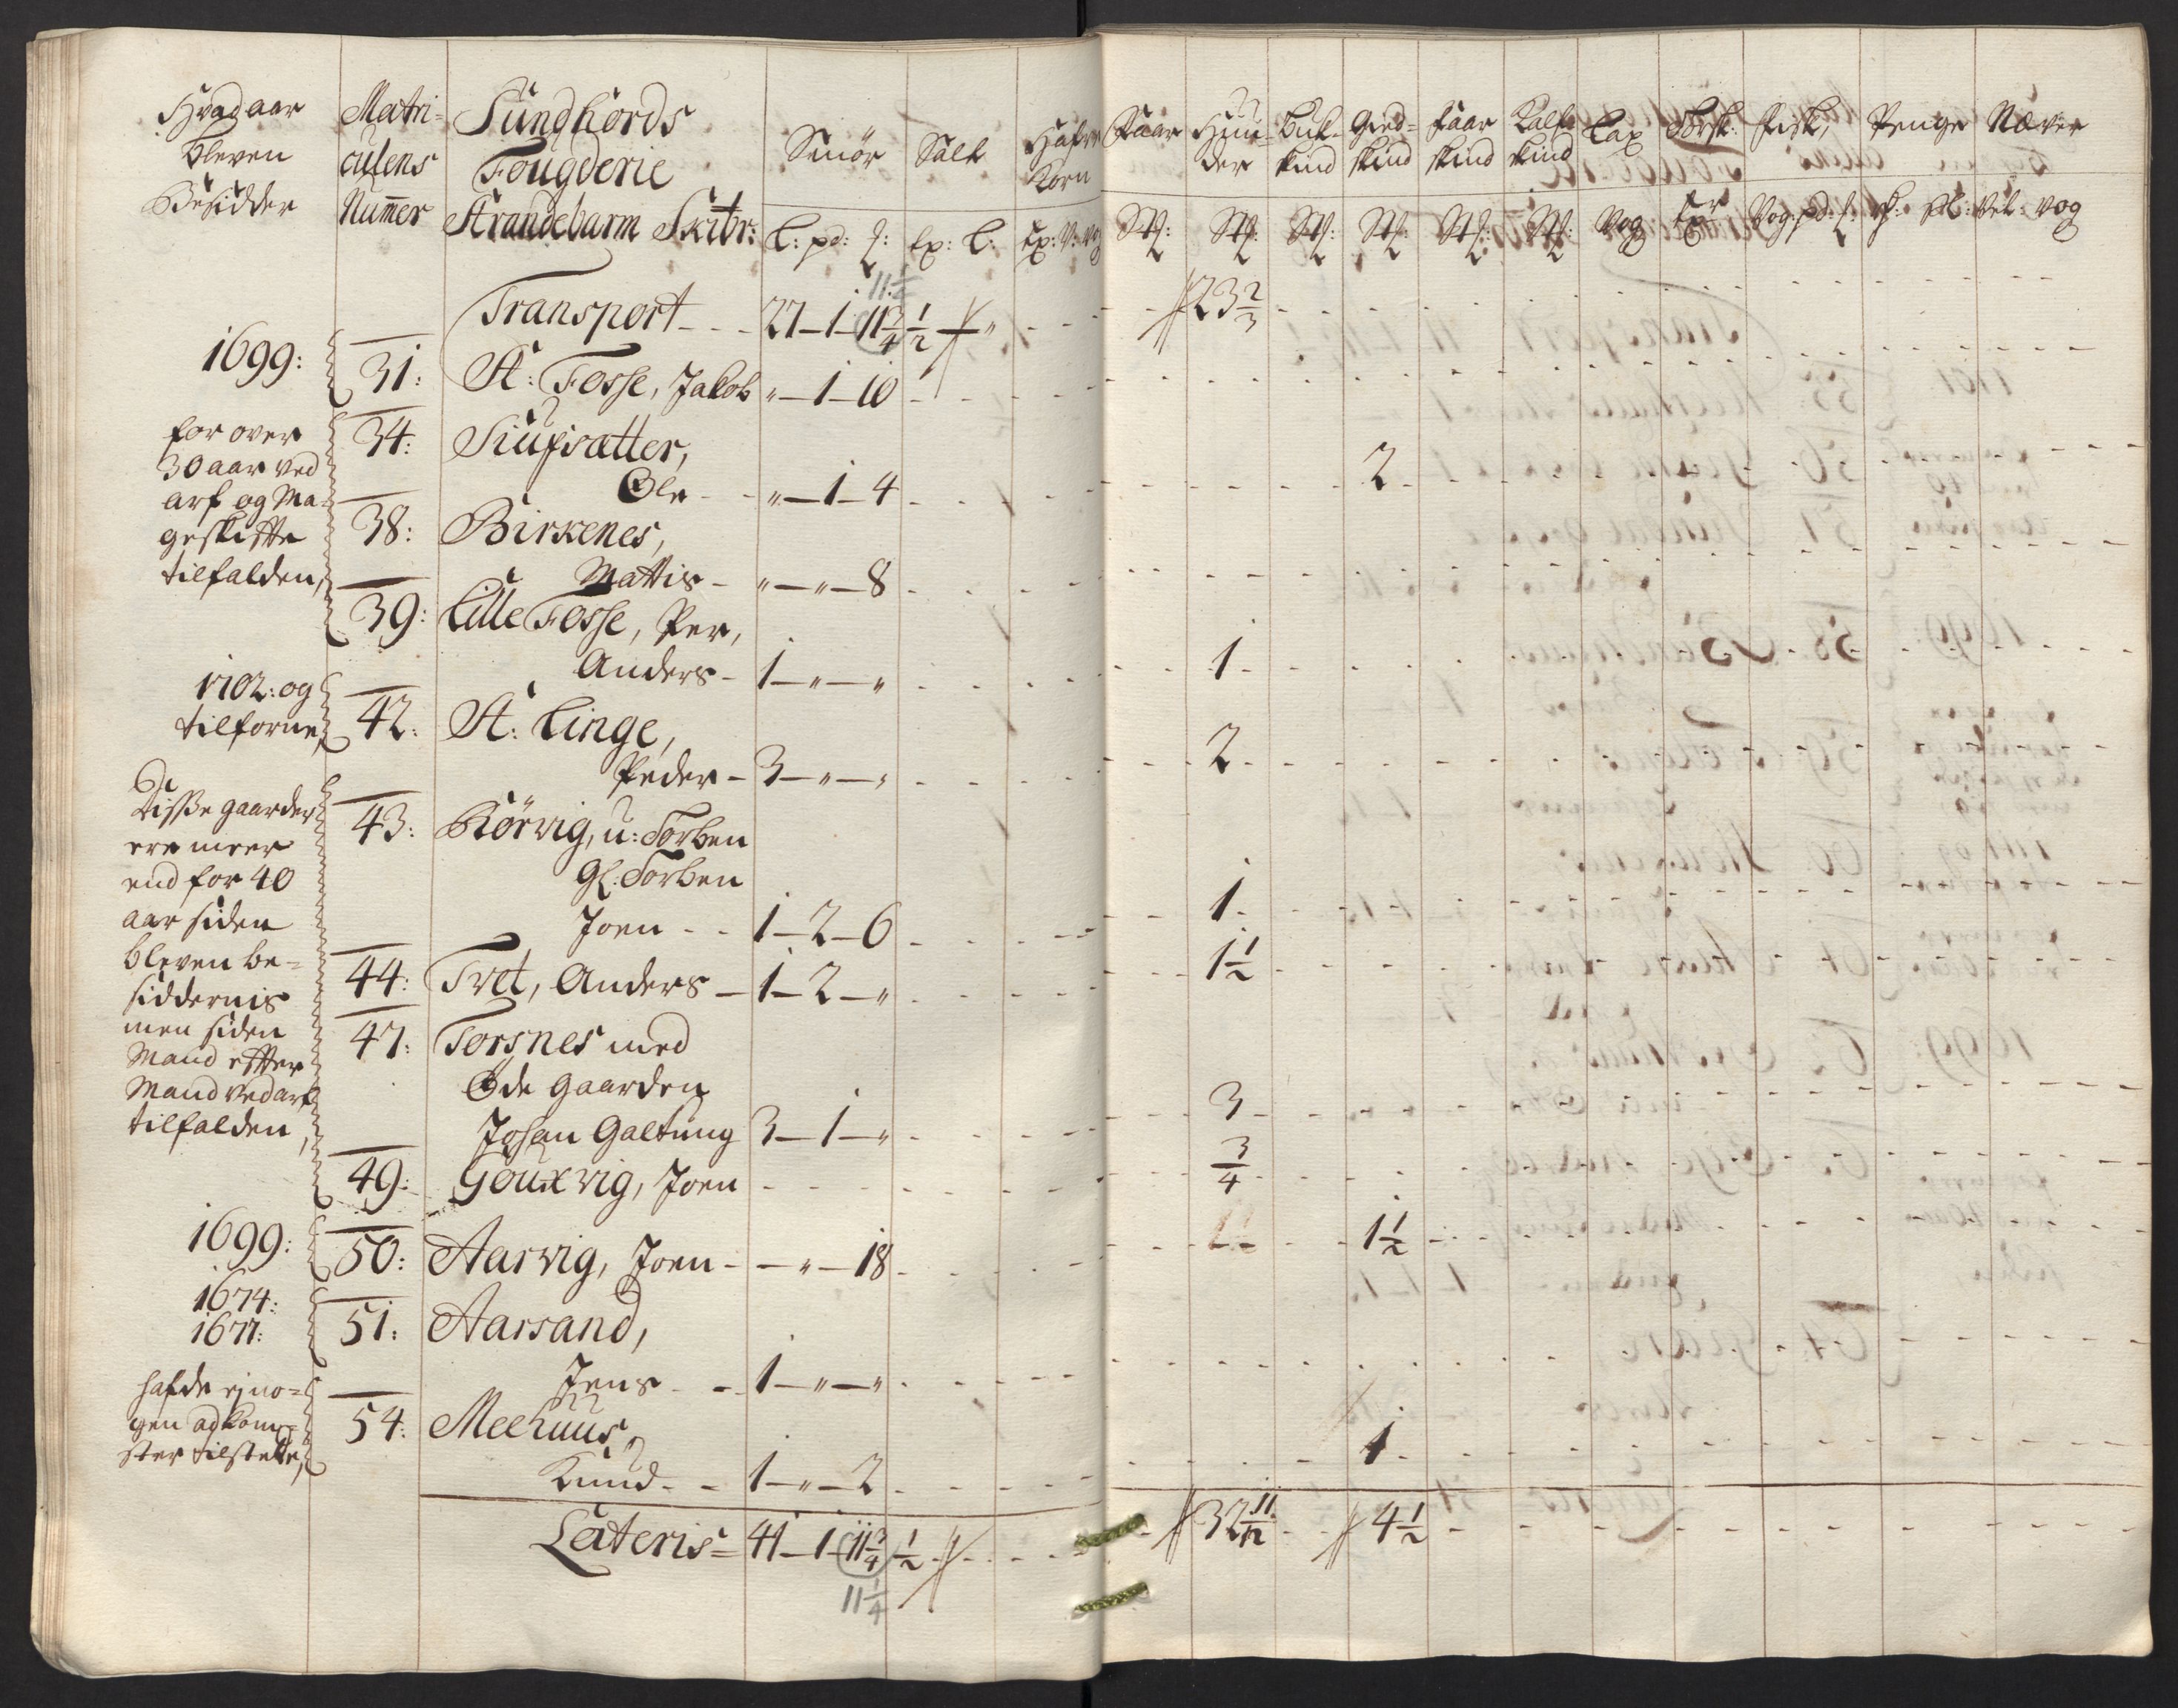 Hvad aar
bleven
Besidder
Matri-
culens
Num̄er
Sundhords
Fougderie
Strandebarm Skibr:
Smör
Salt
Hafre
Korn
Faar
Huu-
der
Buk-
skind
Gied-
skind
Faar
skind
Kalf
skind
Lax
Fisk,
Penge
Næver
L: pd: Tp: L:
Vog
Vog
Transport - - - 27-1-11 3/4 1/2 - - - 23 2/3
11 1/4
1699: 31: St: Fosse, Jakob "-1-10
for over
30 aar ved
arf og Ma-
geskifte
tilfalden,
34:
Ole - - "-1-4 - - - 2
38: Birkenes,
Mattis - "-"-8
39: Lille Fosse, Per,
Anders - 1-"-" - - - 1
1702: og
tilforne, 42: St: Linge,
Peder - 3-"-" - - - 2
Disse gaarder
ere meer
end for 40
aar siden
bleven be-
siddernis
men siden
Mand efter
Mand ved arf
tilfalden,
43: Körvig, u: Torben
Gl: Torben
Joen - - 1-2-6 - - - 1
44: Tvet, Anders - 1-2-" - - - 1 1/2
47: Torsnes med
Öde gaarden
Johan Galtung 3-1-" - - - 3
49: Gouxvig, Joen - - - 3/4
1699: 50: Aarvig, Joen - -"-18 - - - 1 1/2
1674:
1677: 51: Aarsand,
Jens - - 1-"-"
hafde ej no-
gen adkom-
ster tilstede,
54: Meehuus,
Knud - - 1-"-2 - - - 1
Lateris = 41-1-11 3/4 1/2 - - - 32 11/12 - - 4 1/2
11 1/4